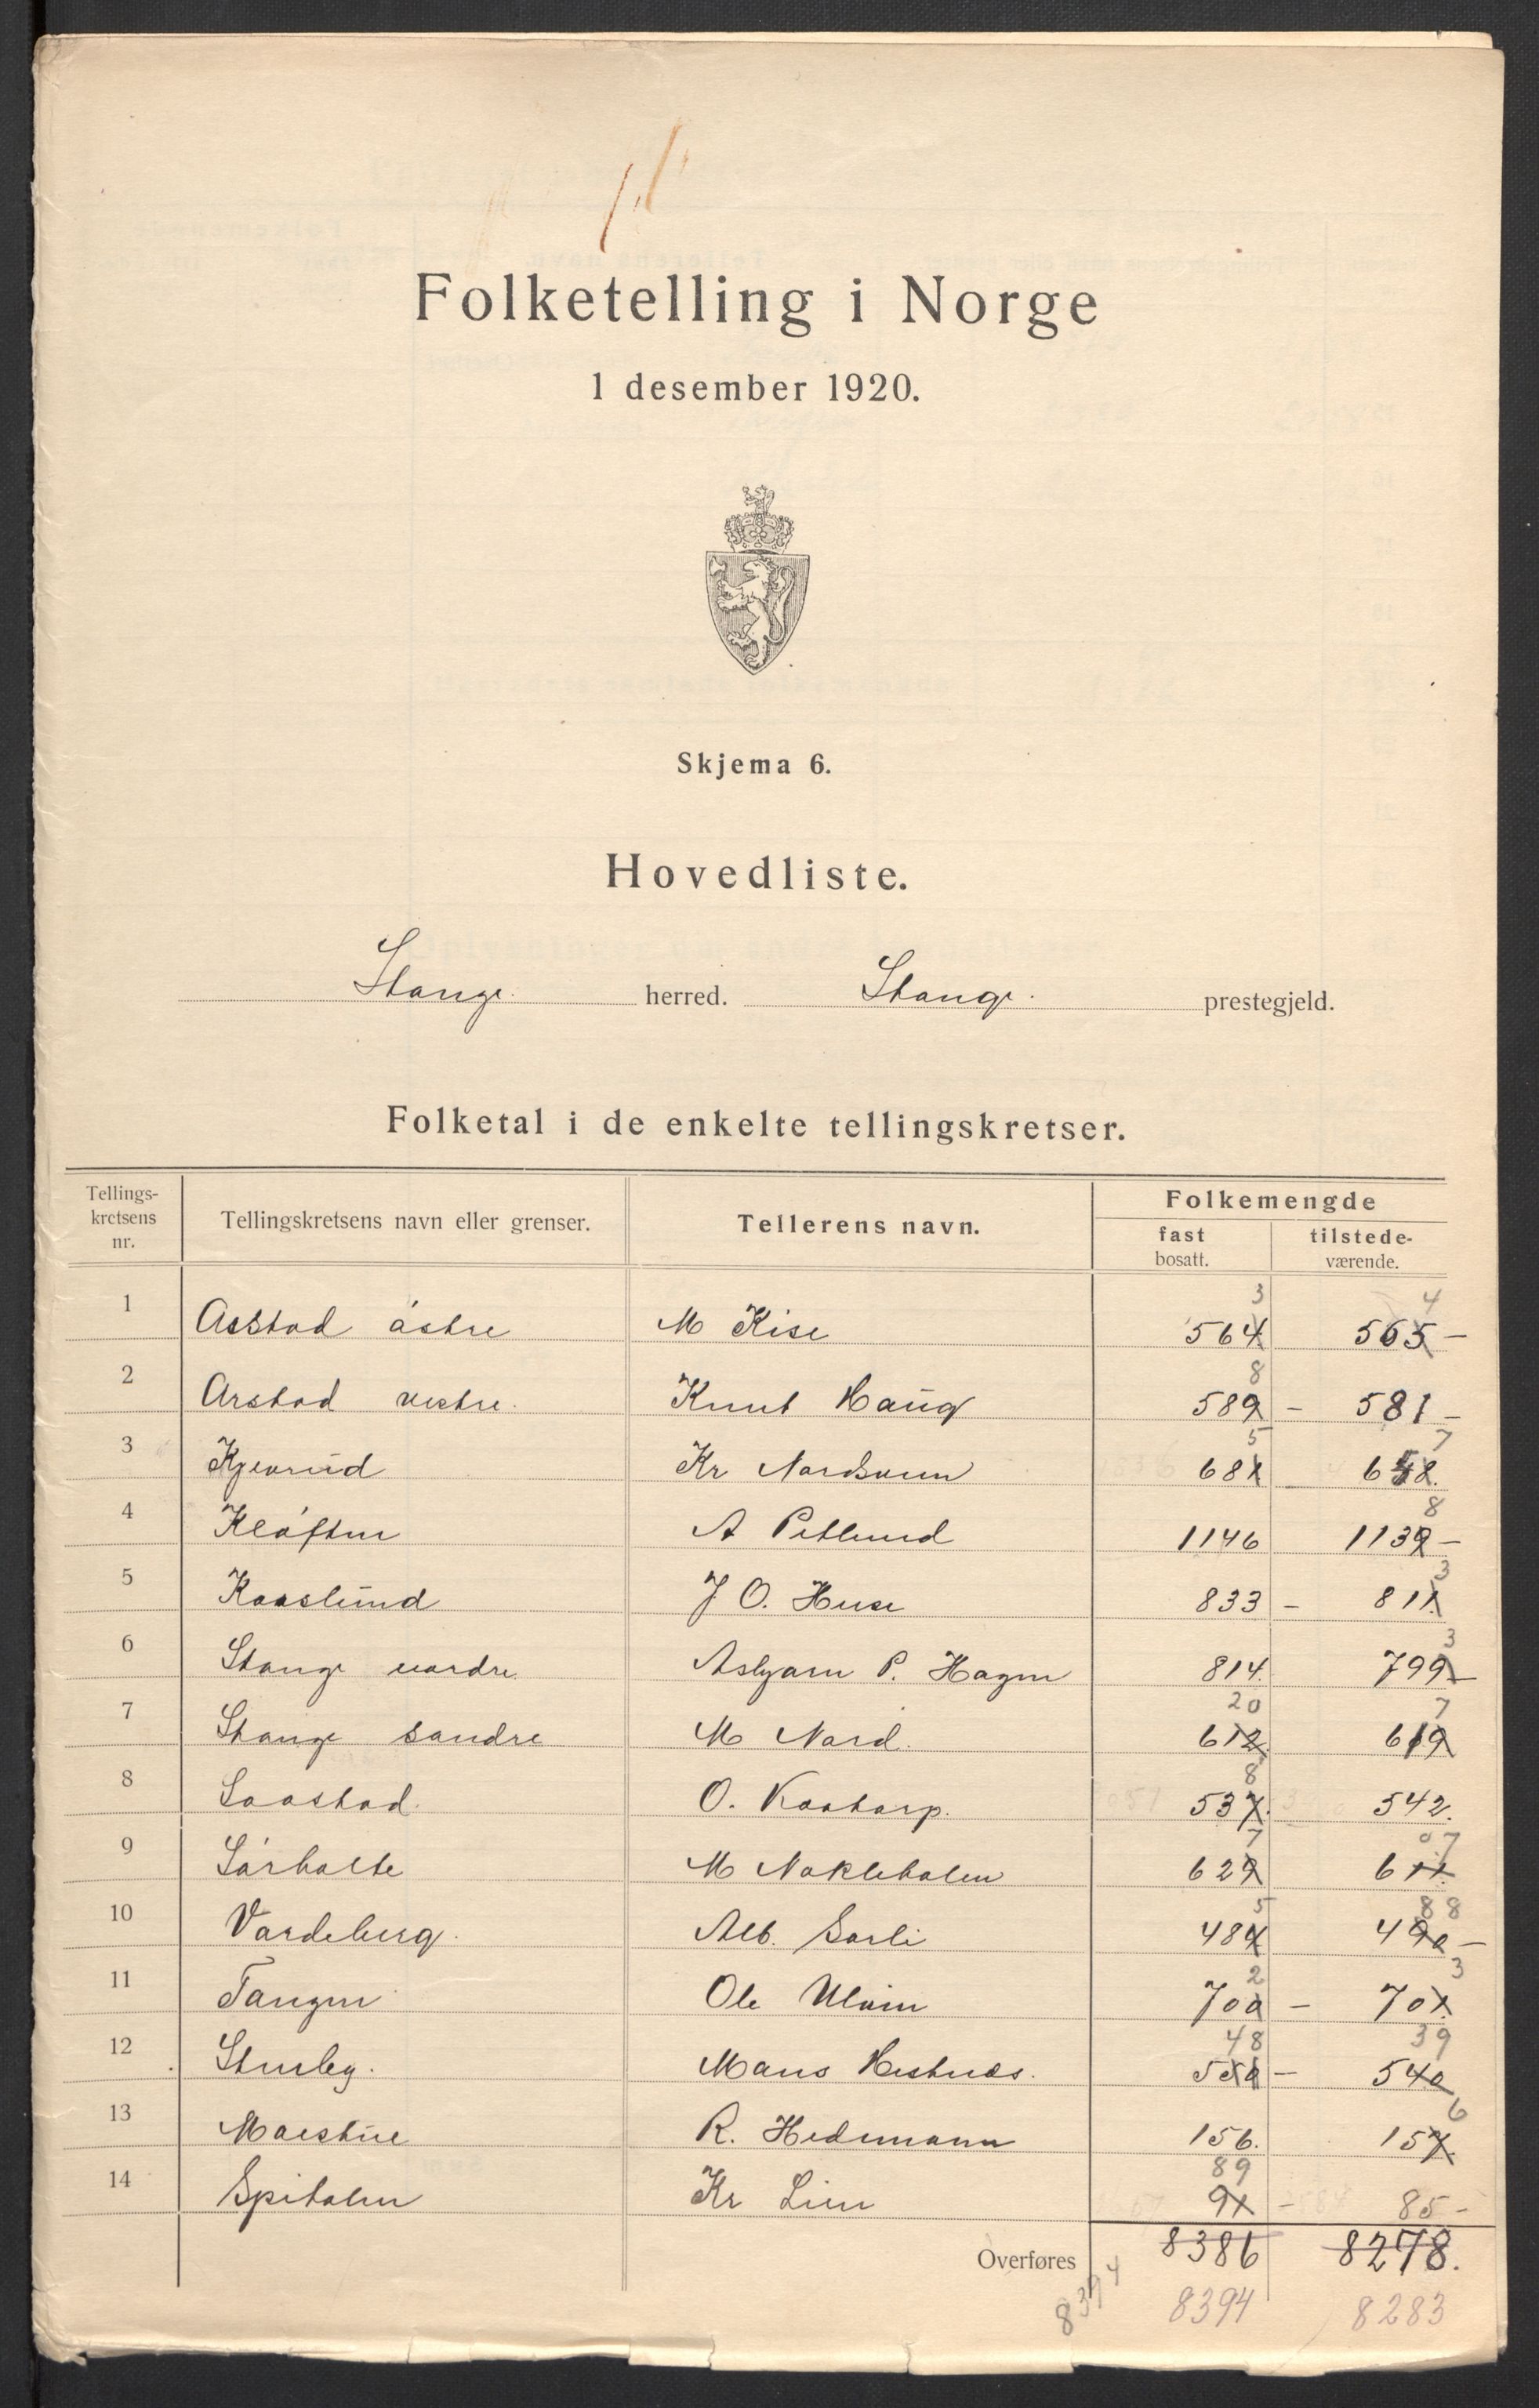 Folketelling i Norge
1 desember 1920.
Skjema 6.
Hovedliste.
Stange herred. Stange prestegjeld.
Folketal i de enkelte tellingskretser.
Tellings-kretsens nr. Tellingskretsens navn eller grenser. Tellerens navn. Folkemengde
fast bosatt. tilstede-værende.
3 4
1 Arstad østre M Kise 564 565 –
8
2 Arstad vestre. Knut Haug 589 – 581 –
5 7
3 Kjenrud Kr Nordsveen 681 648.
8
4 Kløften A Petlund 1146 1139 –
3
5 Kaaslund J O. Huse 833 – 811.
3
6 Stange nordre Asbjørn P. Hagen 814. 799 –
20 7
7 Stange søndre M Nord. 612. 619
8
8 Saastad. O. Kaatorp. 537. 542.
7 07
9 Sørholte M Nokleholen 629 611.
5 88
10 Vardeberg. Alb. Sørli 484 490 –
2 3
11 Tangen Ole Uløin 700 – 701.
48 39
12 Stensby. Mons Hestnæs. 550 – 540
6
13 Maistue R. Hedemann 156. 157.
89
14 Spitalen Kr Lien 91 – 85 –
Overføres 8386 8278.
8394 8394 8283